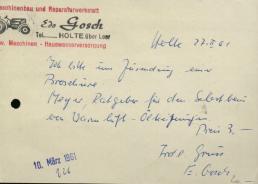 Maschinenbau und Reparaturwerkstatt
Edo Gosch
Tel. HOLTE über Leer
Maschinen - Hauswasserversorgung
Holte 27.II 61
Ich bitte um Zusendung einer
Broschüre
Meyer, Ratgeber für den Selbstbau
von Warmluft-Ölheizungen
Preis 3.-
Gruss
E. Gosch
10. März 1961